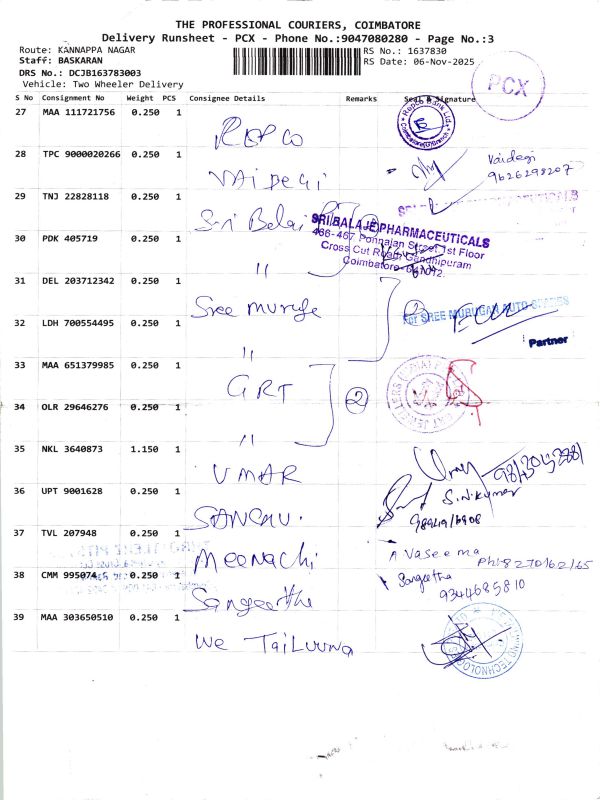 THE PROFESSIONAL COURIERS, COIMBATORE
Delivery Runsheet - PCX - Phone No.:9047080280 - Page No.:3
Route: KANNAPPA NAGAR
RS No.: 1637830
Staff: BASKARAN
RS Date: 06-Nov-2025
DRS No.: DCJB163783003
Vehicle: Two Wheeler Delivery
PCX
S No Consignment No Weight PCS Consignee Details Remarks Seal & Signature
27 MAA 111721756 0.250 1
REPCO
28 TPC 9000020266 0.250 1
VAIDEGI
Vaidegi
9626298207
29 TNJ 22828118 0.250 1
Sri Balaji
SRI BALAJE PHARMACEUTICALS
466-467 Ponnaian Street 1st Floor
Cross Cut Road, Gandhipuram
Coimbatore-641012.
30 PDK 405719 0.250 1
"
31 DEL 203712342 0.250 1
Sree Muruge
For SREE MURUGAN AUTO SPARES
Partner
32 LDH 700554495 0.250 1
"
33 MAA 651379985 0.250 1
GRT
2
34 OLR 29646276 0.250 1
"
35 NKL 3640873 1.150 1
UMAR
36 UPT 9001628 0.250 1
SANGHU.
S.N.Kumar
37 TVL 207948 0.250 1
Meenachi
A Vaseema
38 CMM 995074 0.250 1
Sangeetha
Sangeetha
9344685810
39 MAA 303650510 0.250 1
We